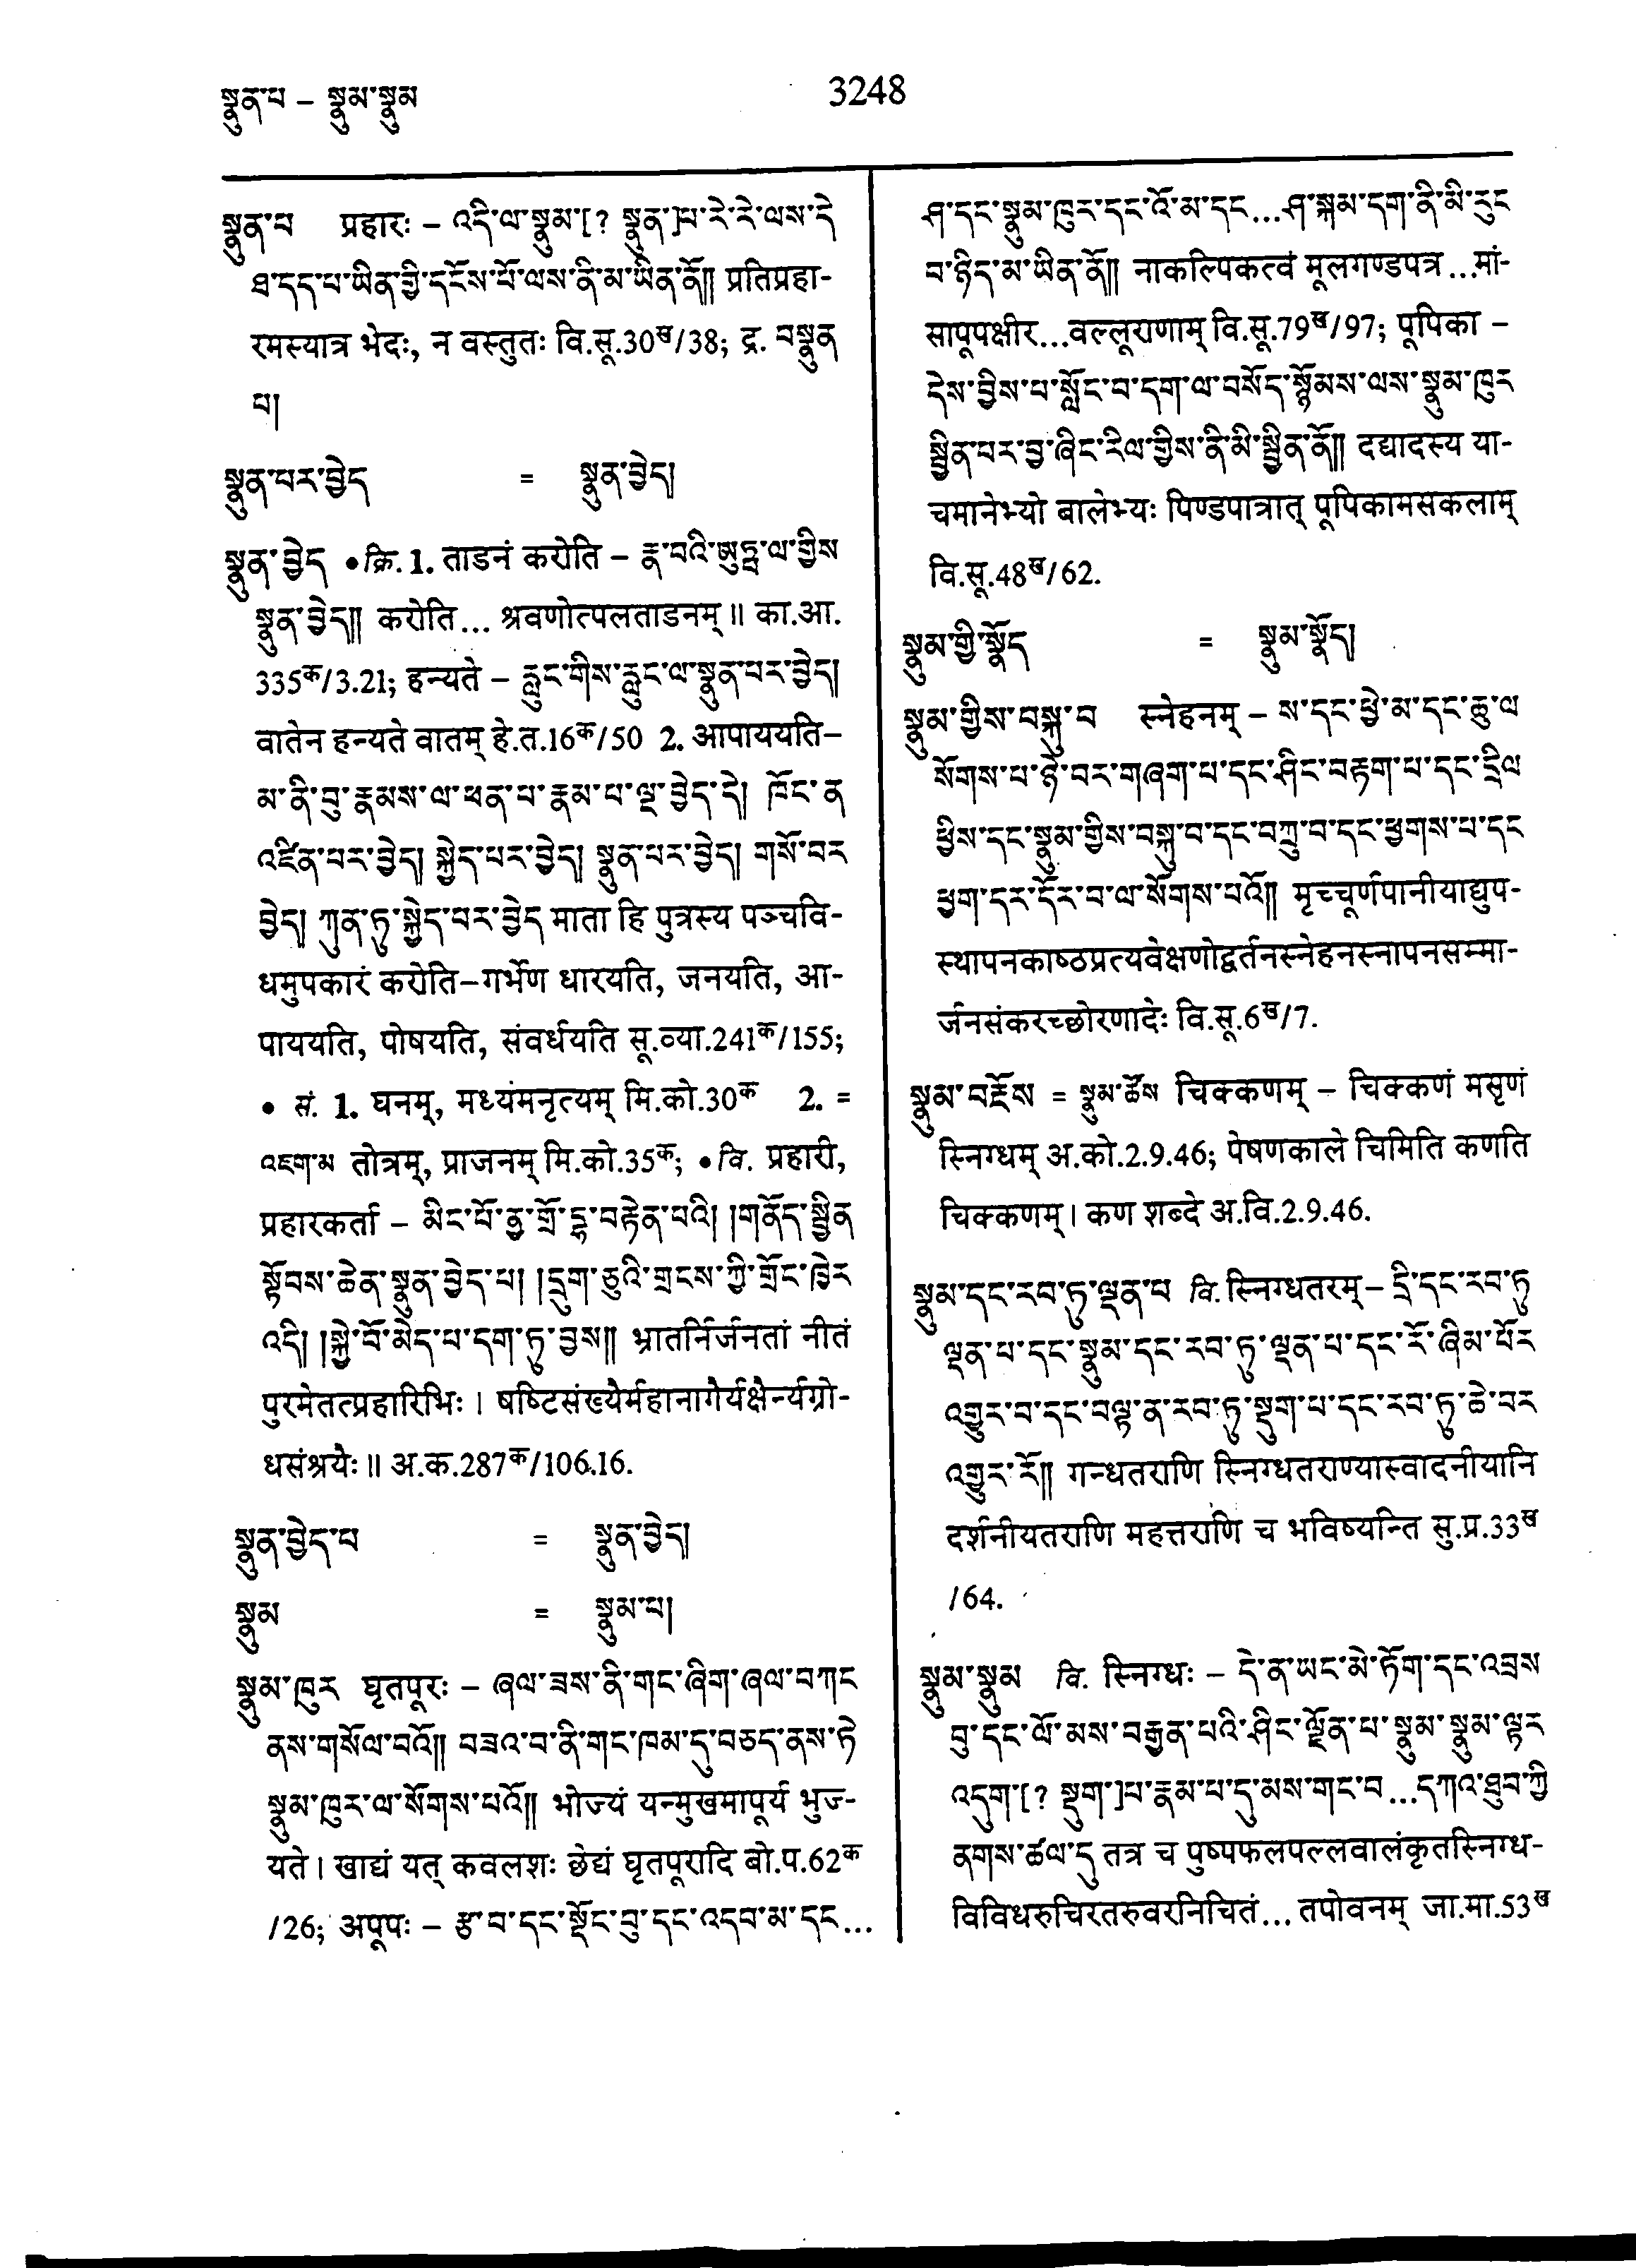 སྣུན་པ – སྣུམ་སྣུམ
3248
སྣུན་པ प्रहारः – འདི་ལ་སྣུམ་[? སྣུན་]པ་རེ་རེ་ལས་དེ
ཐ་དད་པ་ཡིན་གྱི་དངོས་པོ་ལས་ནི་མ་ཡིན་ནོ།། प्रतिप्रहा-
रमस्यात्र भेदः, न वस्तुतः वि.सू.30ख/38; द्र. བསྣུན
པ།
སྣུན་པར་བྱེད = སྣུན་བྱེད།
སྣུན་བྱེད •क्रि. 1. ताडनं करोति – རྣ་བའི་ཨུཏྤ་ལ་གྱིས
སྣུན་བྱེད།། करोति... श्रवणोत्पलताडनम् ॥ का.आ.
335क/3.21; हन्यते – རླུང་གིས་རླུང་ལ་སྣུན་པར་བྱེད།
वातेन हन्यते वातम् हे.त.16क/50 2. आपाययति–
མ་ནི་བུ་རྣམས་ལ་ཕན་པ་རྣམ་པ་ལྔ་བྱེད་དེ། ཁོང་ན
འཛིན་པར་བྱེད། སྐྱེད་པར་བྱེད། སྣུན་པར་བྱེད། གསོ་བར
བྱེད། ཀུན་ཏུ་སྐྱེད་པར་བྱེད माता हि पुत्रस्य पञ्चवि-
धमुपकारं करोति–गर्भेण धारयति, जनयति, आ-
पाययति, पोषयति, संवर्धयति सू.व्या.241क/155;
• सं. 1. घनम्, मध्यंमनृत्यम् मि.को.30क 2. =
འཇག་མ तोत्रम्, प्राजनम् मि.को.35क; •वि. प्रहारी,
प्रहारकर्ता – མིང་པོ་ནྱ་གྲོ་དྷ་བརྟེན་པའི། །གནོད་སྦྱིན
སྟོབས་ཆེན་སྣུན་བྱེད་པ། །དྲུག་ཅུའི་གྲངས་ཀྱི་གྲོང་ཁྱེར
འདི། །སྐྱེ་བོ་མེད་པ་དག་ཏུ་བྱས།། भ्रातर्निर्जनतां नीतं
पुरमेतत्प्रहारिभिः । षष्टिसंख्यैर्महानागैर्यक्षैर्न्यग्रो-
धसंश्रयैः ॥ अ.क.287क/106.16.
སྣུན་བྱེད་པ = སྣུན་བྱེད།
སྣུམ = སྣུམ་པ།
སྣུམ་ཁུར घृतपूरः – ཞལ་ཟས་ནི་གང་ཞིག་ཞལ་བཀང
ནས་གསོལ་བའོ།། བཟའ་བ་ནི་གང་ཁམ་དུ་བཅད་ནས་ཏེ
སྣུམ་ཁུར་ལ་སོགས་པའོ།། भोज्यं यन्मुखमापूर्य भुज्-
यते । खाद्यं यत् कवलशः छेद्यं घृतपूरादि बो.प.62क
/26; अपूपः – རྩ་བ་དང་སྡོང་བུ་དང་འདབ་མ་དང...
ཤ་དང་སྣུམ་ཁུར་དང་འོ་མ་དང...ཤ་སྐམ་དག་ནི་མི་རུང
བ་ཉིད་མ་ཡིན་ནོ།། नाकल्पिकत्वं मूलगण्डपत्र...मां-
सापूपक्षीर...वल्लूराणाम् वि.सू.79ख/97; पूपिका –
དེས་བྱིས་པ་སློང་བ་དག་ལ་བསོད་སྙོམས་ལས་སྣུམ་ཁུར
སྦྱིན་པར་བྱ་ཞིང་རིལ་གྱིས་ནི་མི་སྦྱིན་ནོ།། दद्यादस्य या-
चमानेभ्यो बालेभ्यः पिण्डपात्रात् पूपिकामसकलाम्
वि.सू.48ख/62.
སྣུམ་གྱི་སྣོད = སྣུམ་སྣོད།
སྣུམ་གྱིས་བསྐུ་བ स्नेहनम् – ས་དང་ཕྱེ་མ་དང་ཆུ་ལ
སོགས་པ་ཉེ་བར་གཞག་པ་དང་ཤིང་བརྟག་པ་དང་དྲིལ
ཕྱིས་དང་སྣུམ་གྱིས་བསྐུ་བ་དང་བཀྲུ་བ་དང་ཕྱགས་པ་དང
ཕྱག་དར་དོར་བ་ལ་སོགས་པའོ།། मृच्चूर्णपानीयाद्युप-
स्थापनकाष्ठप्रत्यवेक्षणोद्वर्तनस्नेहनस्नापनसम्मा-
र्जनसंकरच्छोरणादेः वि.सू.6ख/7.
སྣུམ་བརྡོས = སྣུམ་ཚོས चिक्कणम् – चिक्कणं मसृणं
स्निग्धम् अ.को.2.9.46; पेषणकाले चिमिति कणति
चिक्कणम् । कण शब्दे अ.वि.2.9.46.
སྣུམ་དང་རབ་ཏུ་ལྡན་པ वि. स्निग्धतरम् – དྲི་དང་རབ་ཏུ
ལྡན་པ་དང་སྣུམ་དང་རབ་ཏུ་ལྡན་པ་དང་རོ་ཞིམ་པོར
འགྱུར་བ་དང་བལྟ་ན་རབ་ཏུ་སྡུག་པ་དང་རབ་ཏུ་ཆེ་བར
འགྱུར་རོ།། गन्धतराणि स्निग्धतराण्यास्वादनीयानि
दर्शनीयतराणि महत्तराणि च भविष्यन्ति सु.प्र.33ख
/64.
སྣུམ་སྣུམ वि. स्निग्धः – དེ་ན་ཡང་མེ་ཏོག་དང་འབྲས
བུ་དང་ལོ་མས་བརྒྱན་པའི་ཤིང་ལྗོན་པ་སྣུམ་སྣུམ་ལྟར
འདུག་[? སྡུག་]པ་རྣམ་པ་དུ་མས་གང་བ...དཀའ་ཐུབ་ཀྱི
ནགས་ཚལ་དུ तत्र च पुष्पफलपल्लवालंकृतस्निग्ध-
विविधरुचिरतरुवरनिचितं... तपोवनम् जा.मा.53ख